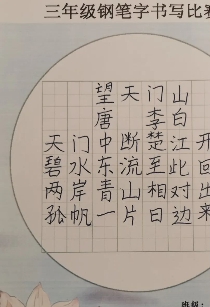 三年级钢笔字书写比赛
望天门山
唐 李白
天门中断楚江开
碧水东流至此回
两岸青山相对出
孤帆一片日边来
班级: